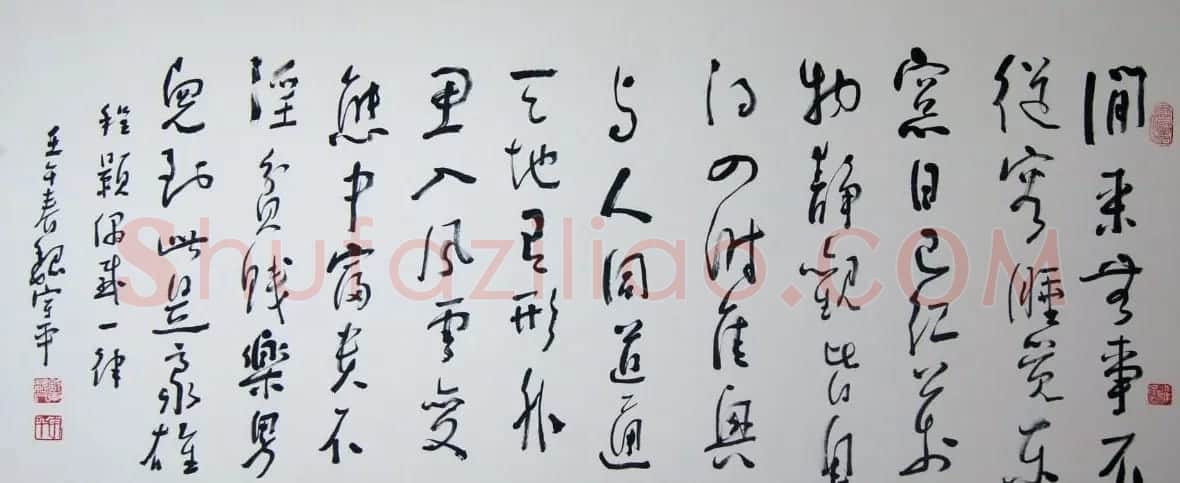 閒來無事不
從容睡覺東
窗日已紅萬
物靜觀皆自
得四時佳興
与人同道通
天地有形外
思入風雲變
態中富貴不
淫貧賤樂男
兒到此是豪雄
程顥偶成一律
壬午春魏宇平
Shufaziliao.COM